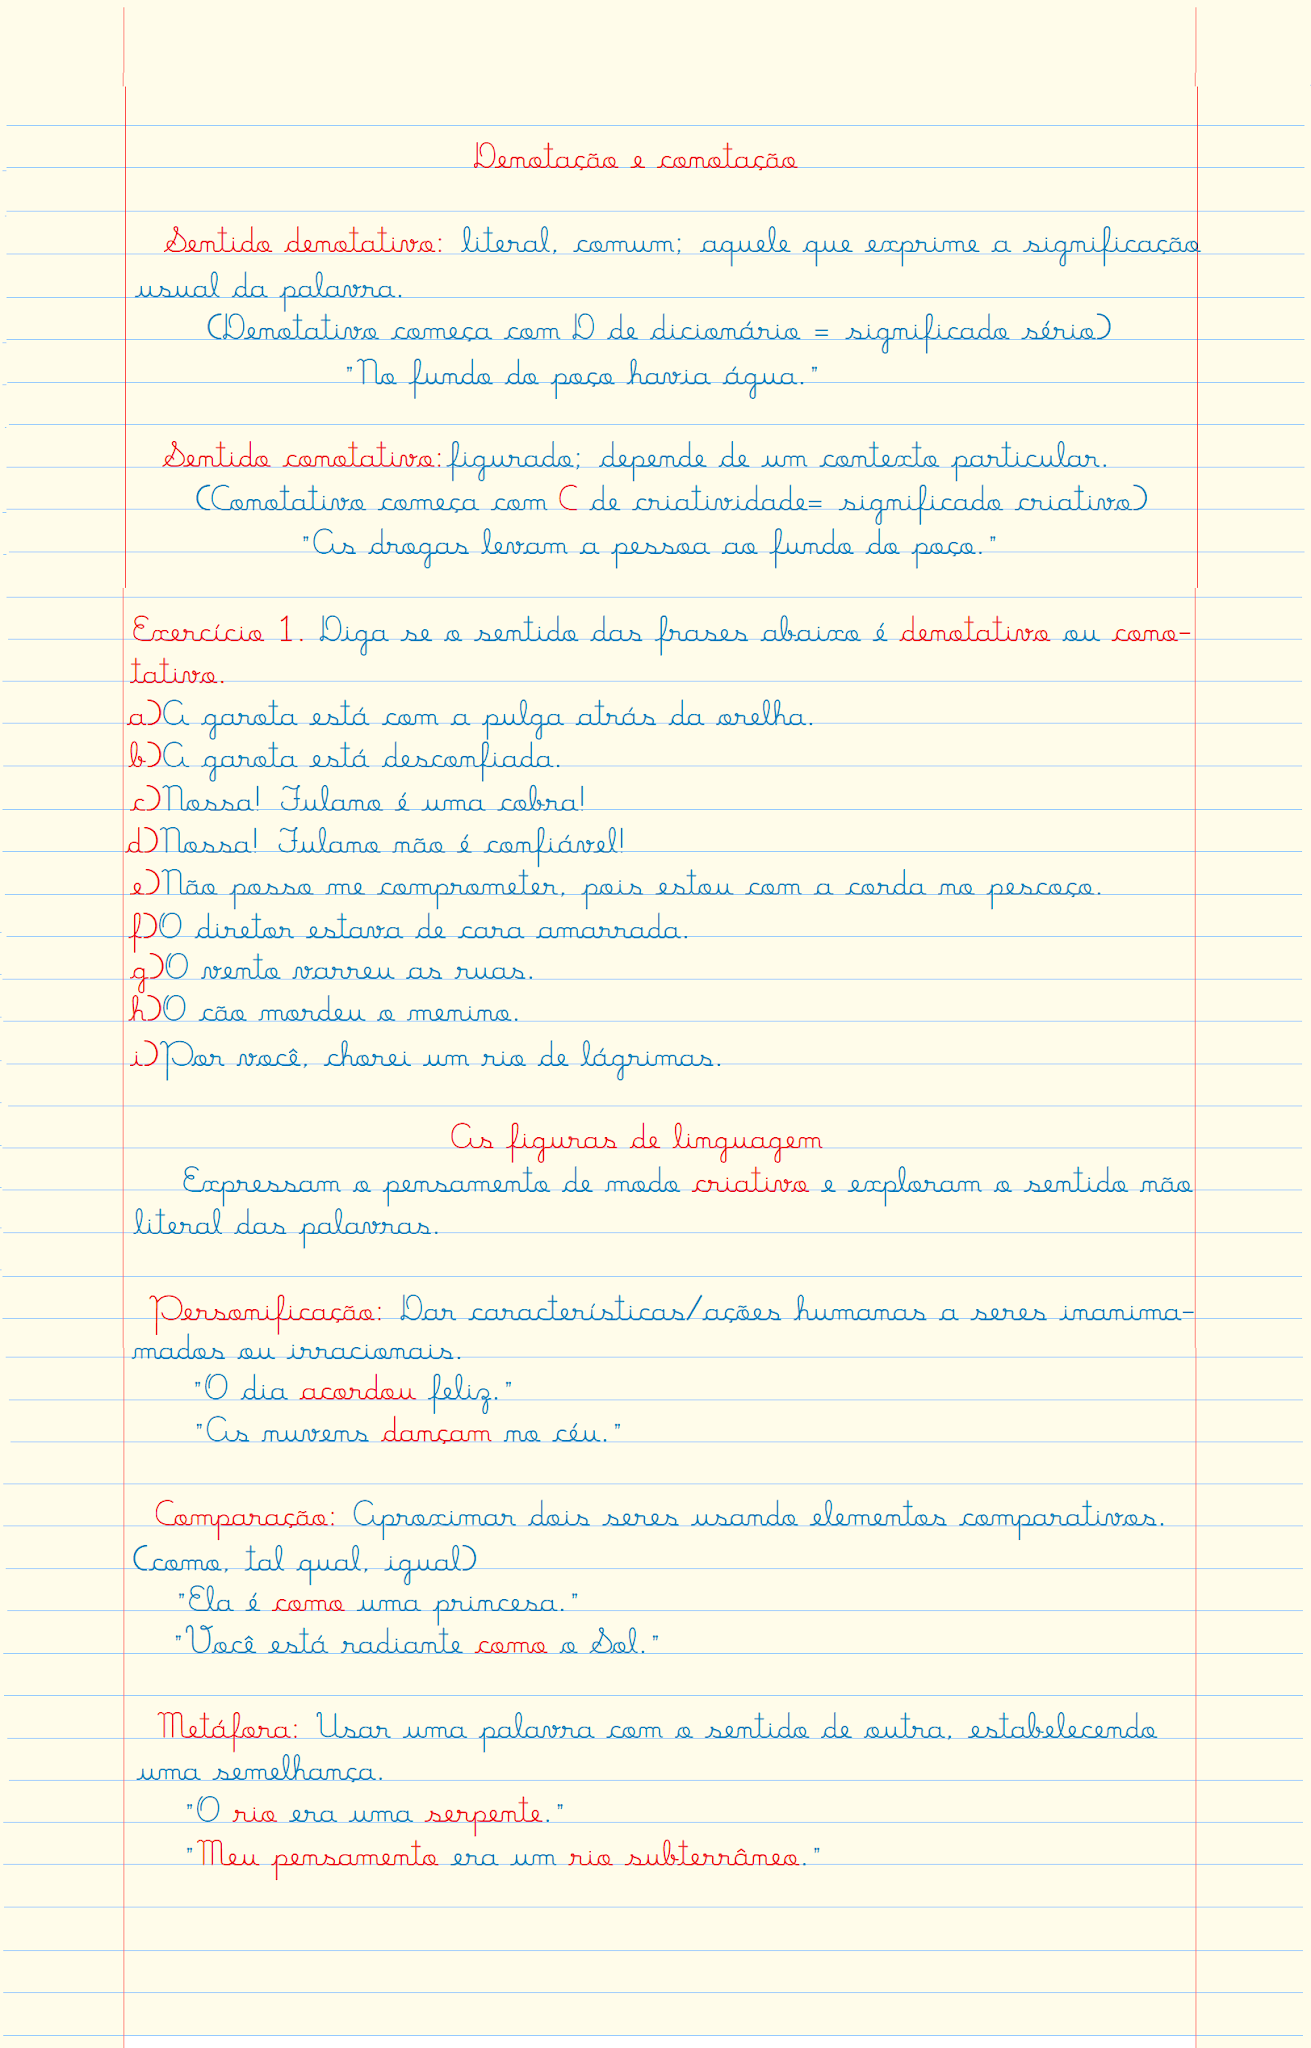 Denotação e conotação
Sentido denotativo: literal, comum; aquele que exprime a significação
usual da palavra.
(Denotativo começa com D de dicionário = significado sério)
"No fundo do poço havia água."
Sentido conotativo: figurado; depende de um contexto particular.
(Conotativo começa com C de criatividade= significado criativo)
"As drogas levam a pessoa ao fundo do poço."
Exercício 1. Diga se o sentido das frases abaixo é denotativo ou cono-
tativo.
a)A garota está com a pulga atrás da orelha.
b)A garota está desconfiada.
c)Nossa! Fulano é uma cobra!
d)Nossa! Fulano não é confiável!
e)Não posso me comprometer, pois estou com a corda no pescoço.
f)O diretor estava de cara amarrada.
g)O vento varreu as ruas.
h)O cão mordeu o menino.
i)Por você, chorei um rio de lágrimas.
As figuras de linguagem
Expressam o pensamento de modo criativo e exploram o sentido não
literal das palavras.
Personificação: Dar características/ações humanas a seres inanima-
mados ou irracionais.
"O dia acordou feliz."
"As nuvens dançam no céu."
Comparação: Aproximar dois seres usando elementos comparativos.
(como, tal qual, igual)
"Ela é como uma princesa."
"Você está radiante como o Sol."
Metáfora: Usar uma palavra com o sentido de outra, estabelecendo
uma semelhança.
"O rio era uma serpente."
"Meu pensamento era um rio subterrâneo."